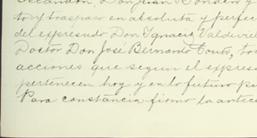 Secundón, Don Juan A. Rondero y
to y traspaso en absoluta y perfec
del expresado Don Ignacio Valdivie
Doctor Don José Bernardo Couto, to
acciones que segun el expres
pertenecen hoy y en lo futuro p
Para constancia firmo la antec